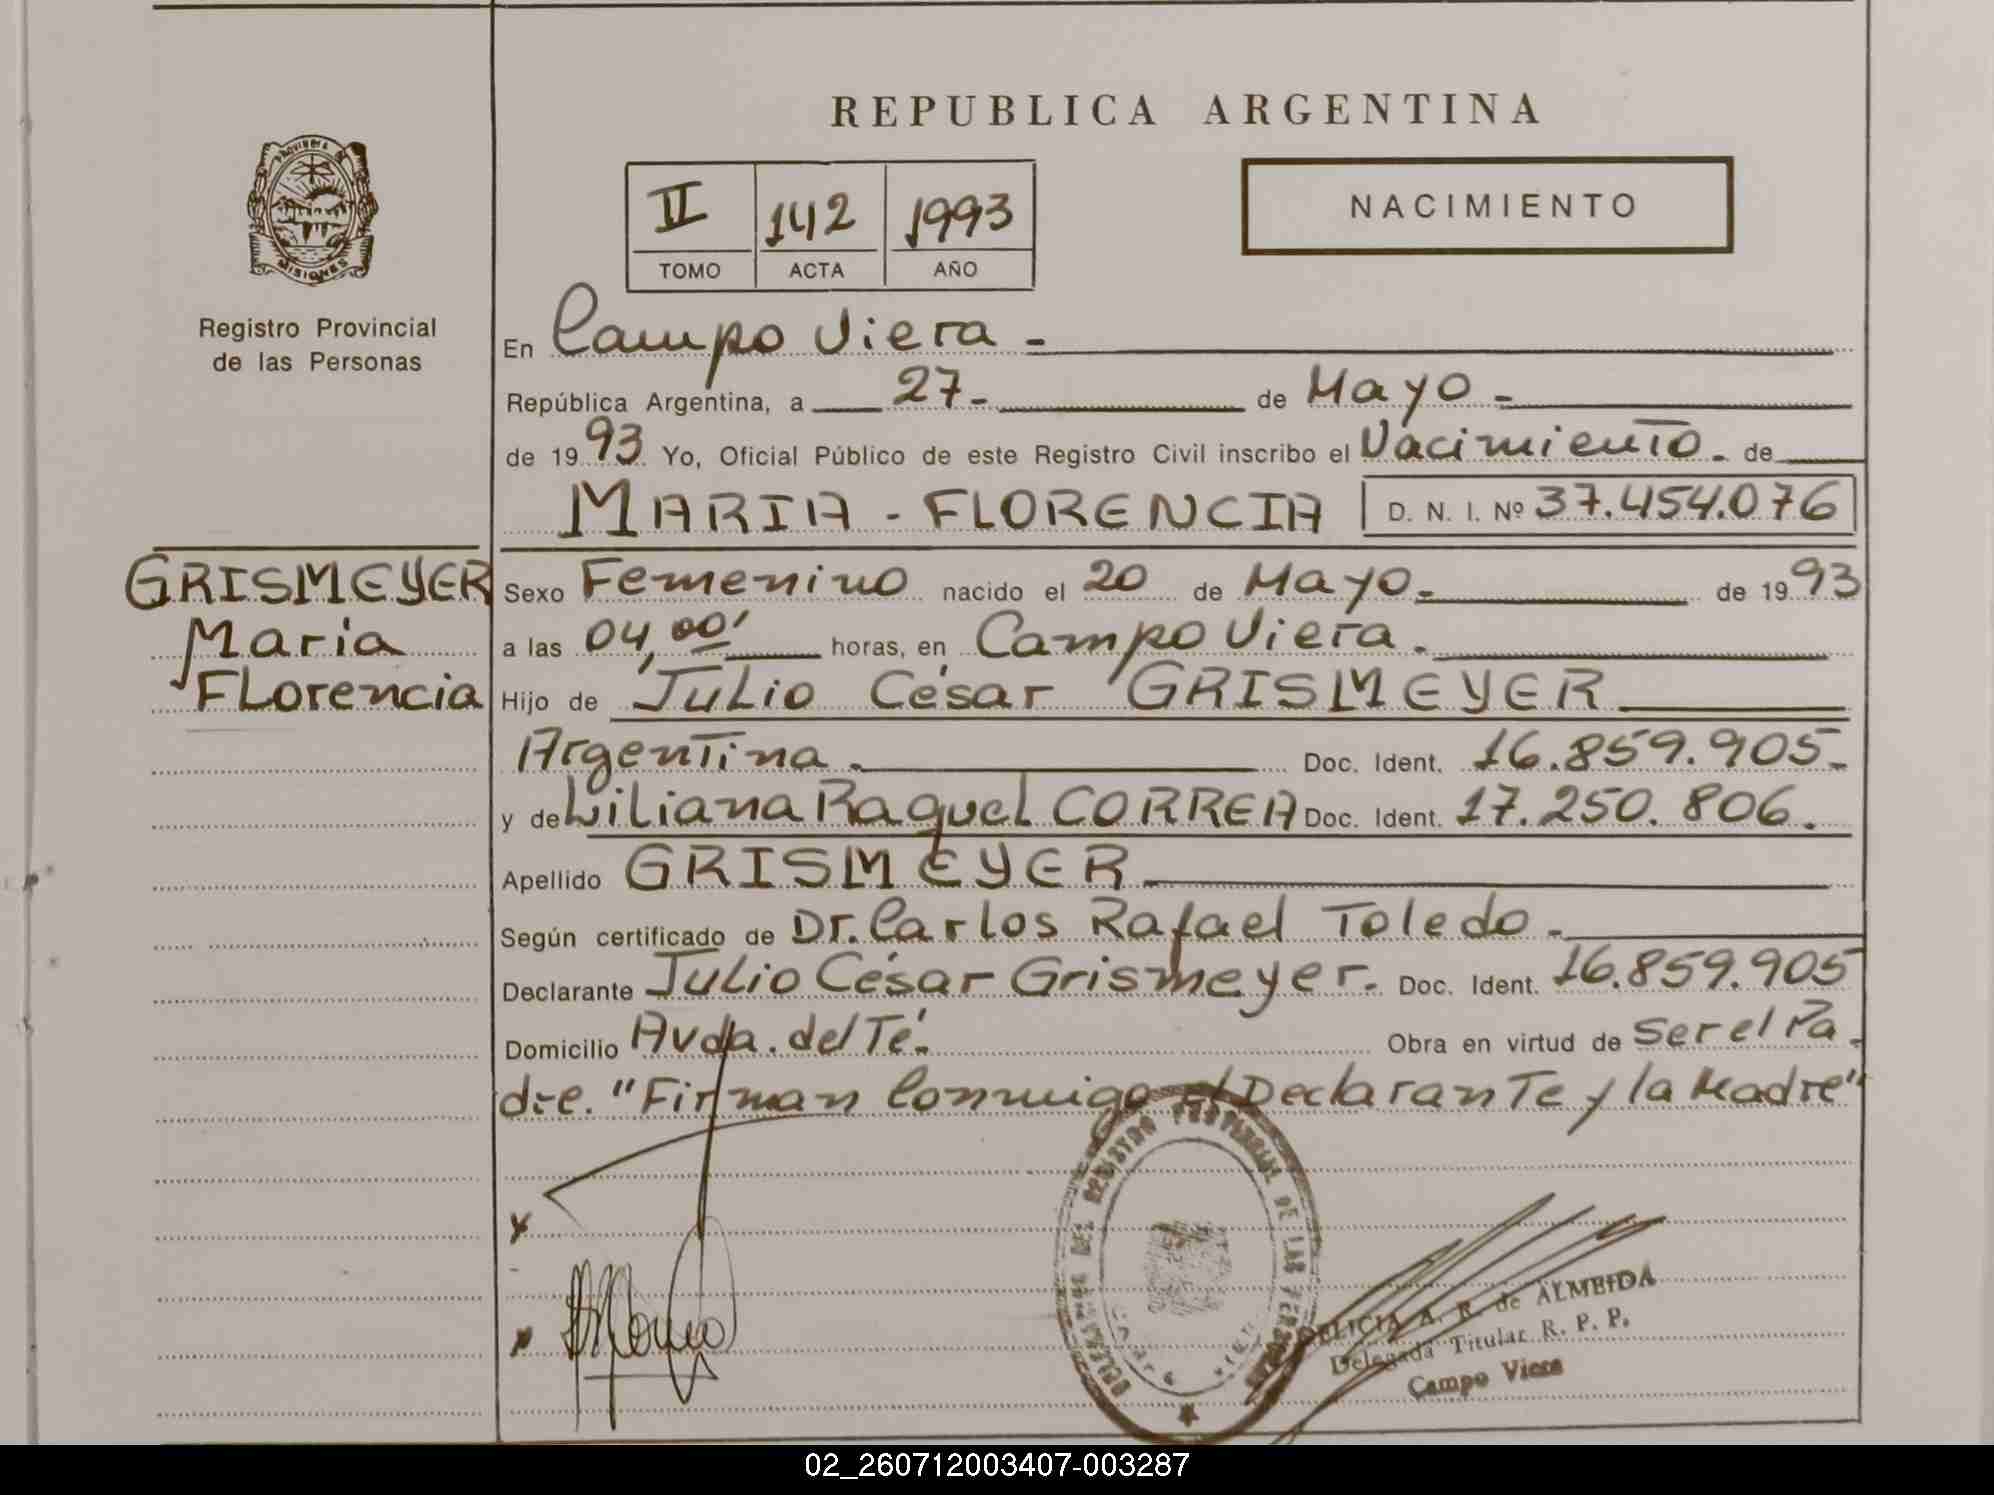 REPUBLICA ARGENTINA
PROVINCIA DE
MISIONES
Registro Provincial
de las Personas
II 142 1993
TOMO ACTA AÑO
NACIMIENTO
En Campo Viera -
República Argentina, a 27- de Mayo -
de 1993 Yo, Oficial Público de este Registro Civil inscribo el Nacimiento - de
MARIA - FLORENCIA D. N. I. Nº 37.454.076
GRISMEYER
Maria
FLorencia
Sexo Femenino nacido el 20 de Mayo - de 1993
a las 04,00' horas, en Campo Viera.
Hijo de Julio César GRISMEYER
Argentina. Doc. Ident. 16.859.905-
y de Liliana Raquel CORREA Doc. Ident. 17.250.806.
Apellido GRISMEYER
Según certificado de Dr. Carlos Rafael Toledo -
Declarante Julio César Grismeyer. Doc. Ident. 16.859.905
Domicilio Avda. del Té. Obra en virtud de Ser el Pa-
dre. "Firman Conmigo el Declarante y la Madre"
DEL REGISTRO PROVINCIAL DE LAS PERSONAS
DELICIA A. R. de ALMEIDA
Delegada Titular R. P. P.
Campo Viera
02_260712003407-003287